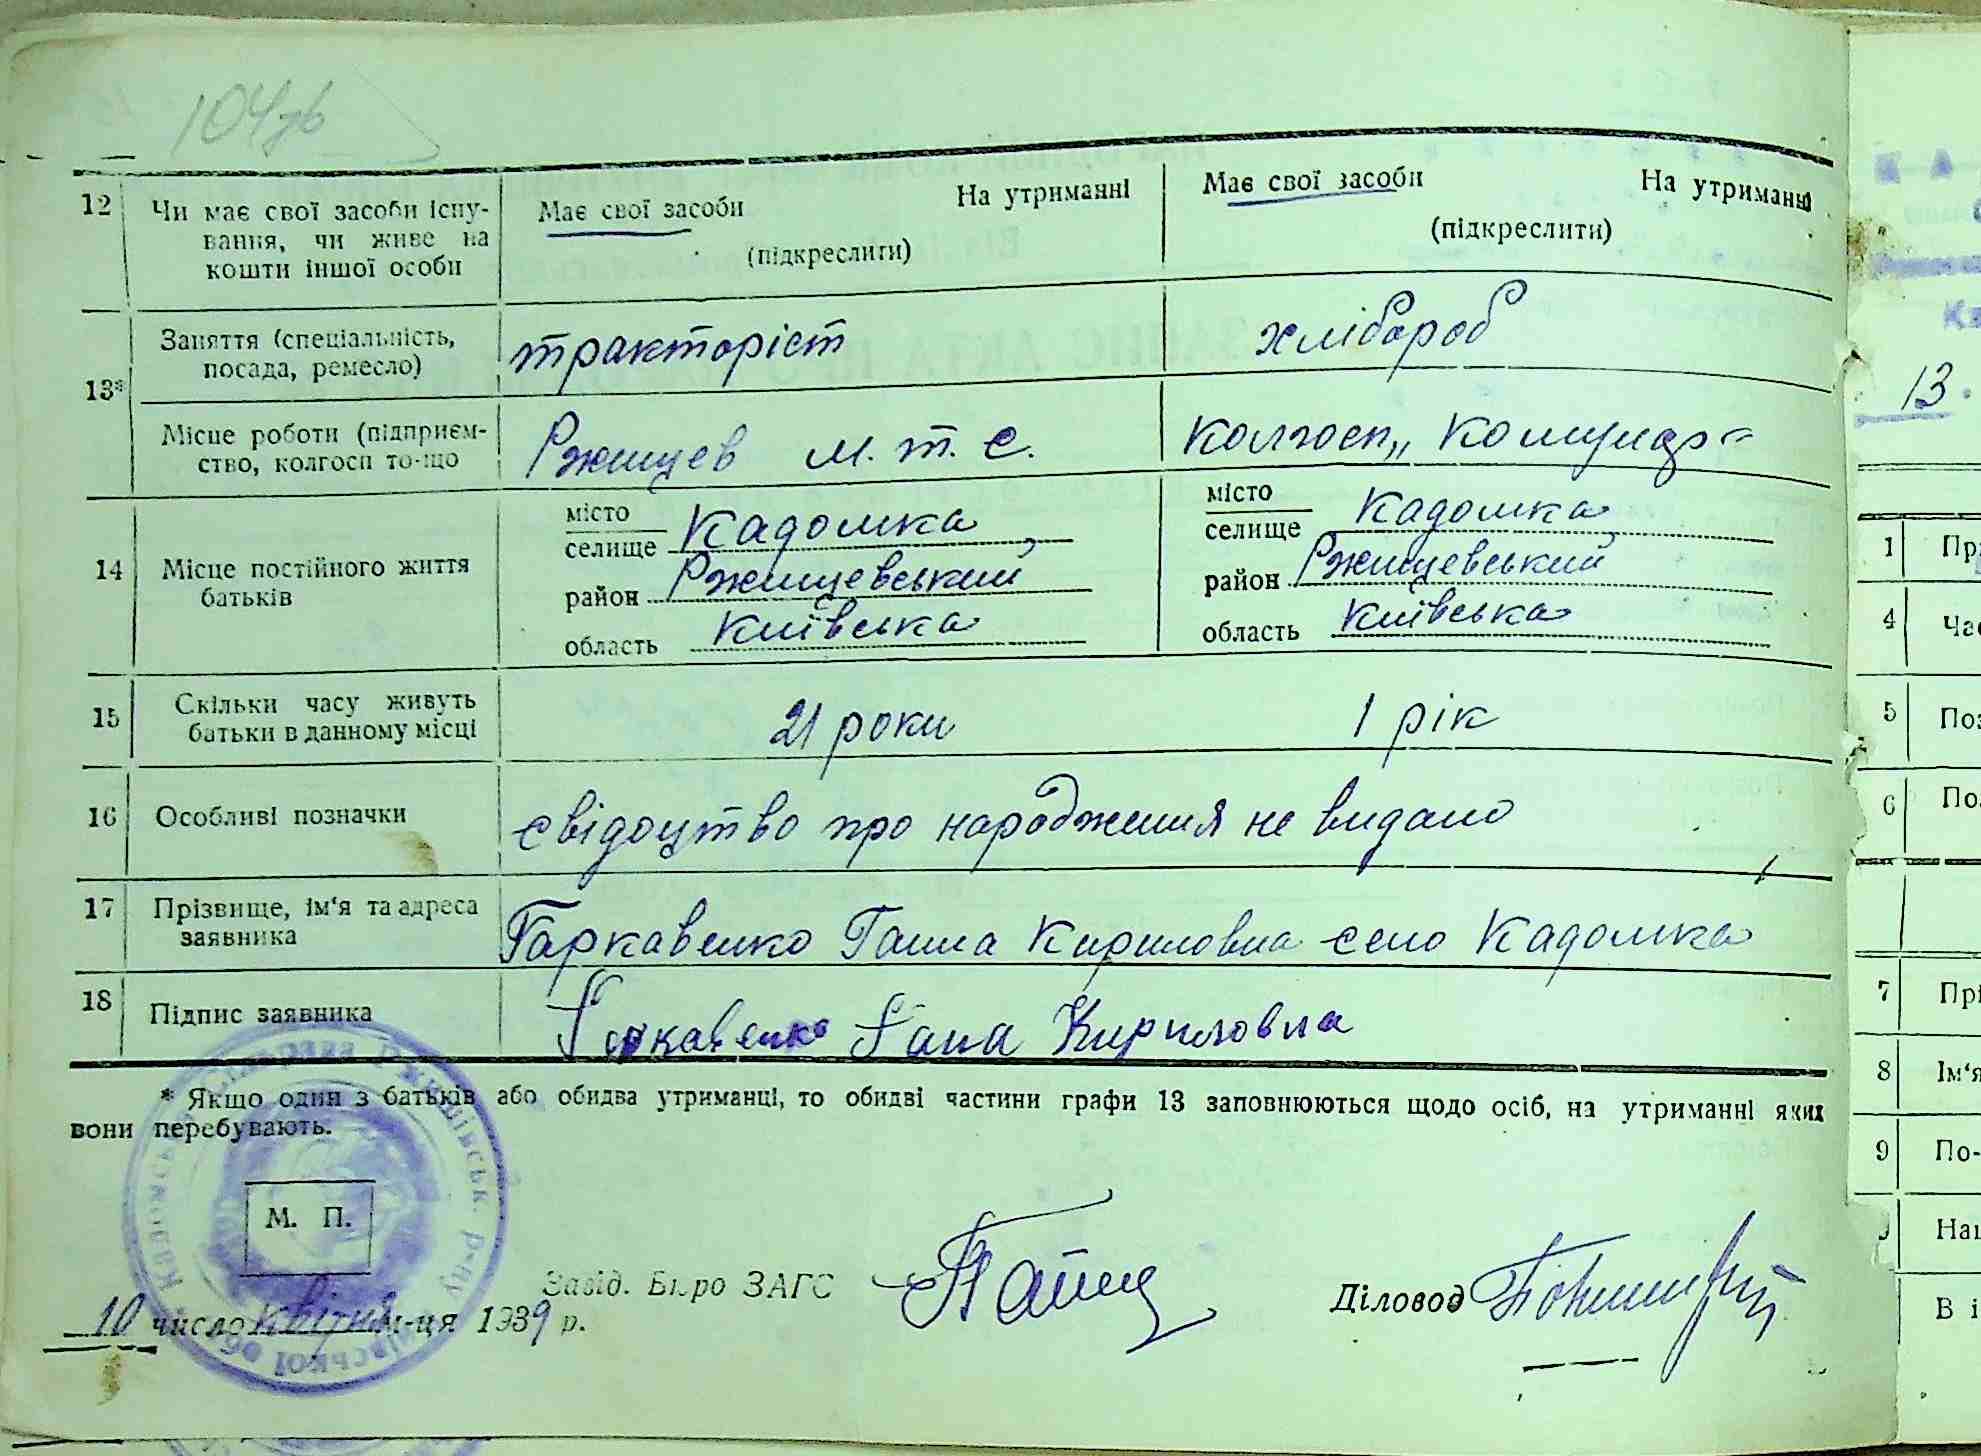 104зв
12 Чи має свої засоби існу-
вання, чи живе на
кошти іншої особи
Має свої засоби На утриманні
(підкреслити)
Має свої засоби На утриманні
(підкреслити)
13* Заняття (спеціальність,
посада, ремесло)
тракторіст
хлібороб
Місце роботи (підприєм-
ство, колгосп то-що
Ржищев м.т.с.
колгосп „Комунар“
14 Місце постійного життя
батьків
місто
селище Кадомка
район Ржищевський
область Київська
місто
селище Кадомка
район Ржищевський
область Київська
15 Скільки часу живуть
батьки в данному місці
21 роки
1 рік
16 Особливі позначки
свідоцтво про народження не видано
17 Прізвище, ім‘я та адреса
заявника
Гаркавенко Ганна Кириловна село Кадомка
18 Підпис заявника
Гаркавенко Гана Кириловна
* Якщо один з батьків або обидва утриманці, то обидві частини графи 13 заповнюються щодо осіб, на утриманні яких
вони перебувають.
М. П.
Завід. Бюро ЗАГС
Діловод
10 число квітня м-ця 1939 р.
13
1 Пр
4 Час
5 Поз
6 По
7 Прі
8 Ім‘я
9 По-
Нац
В і